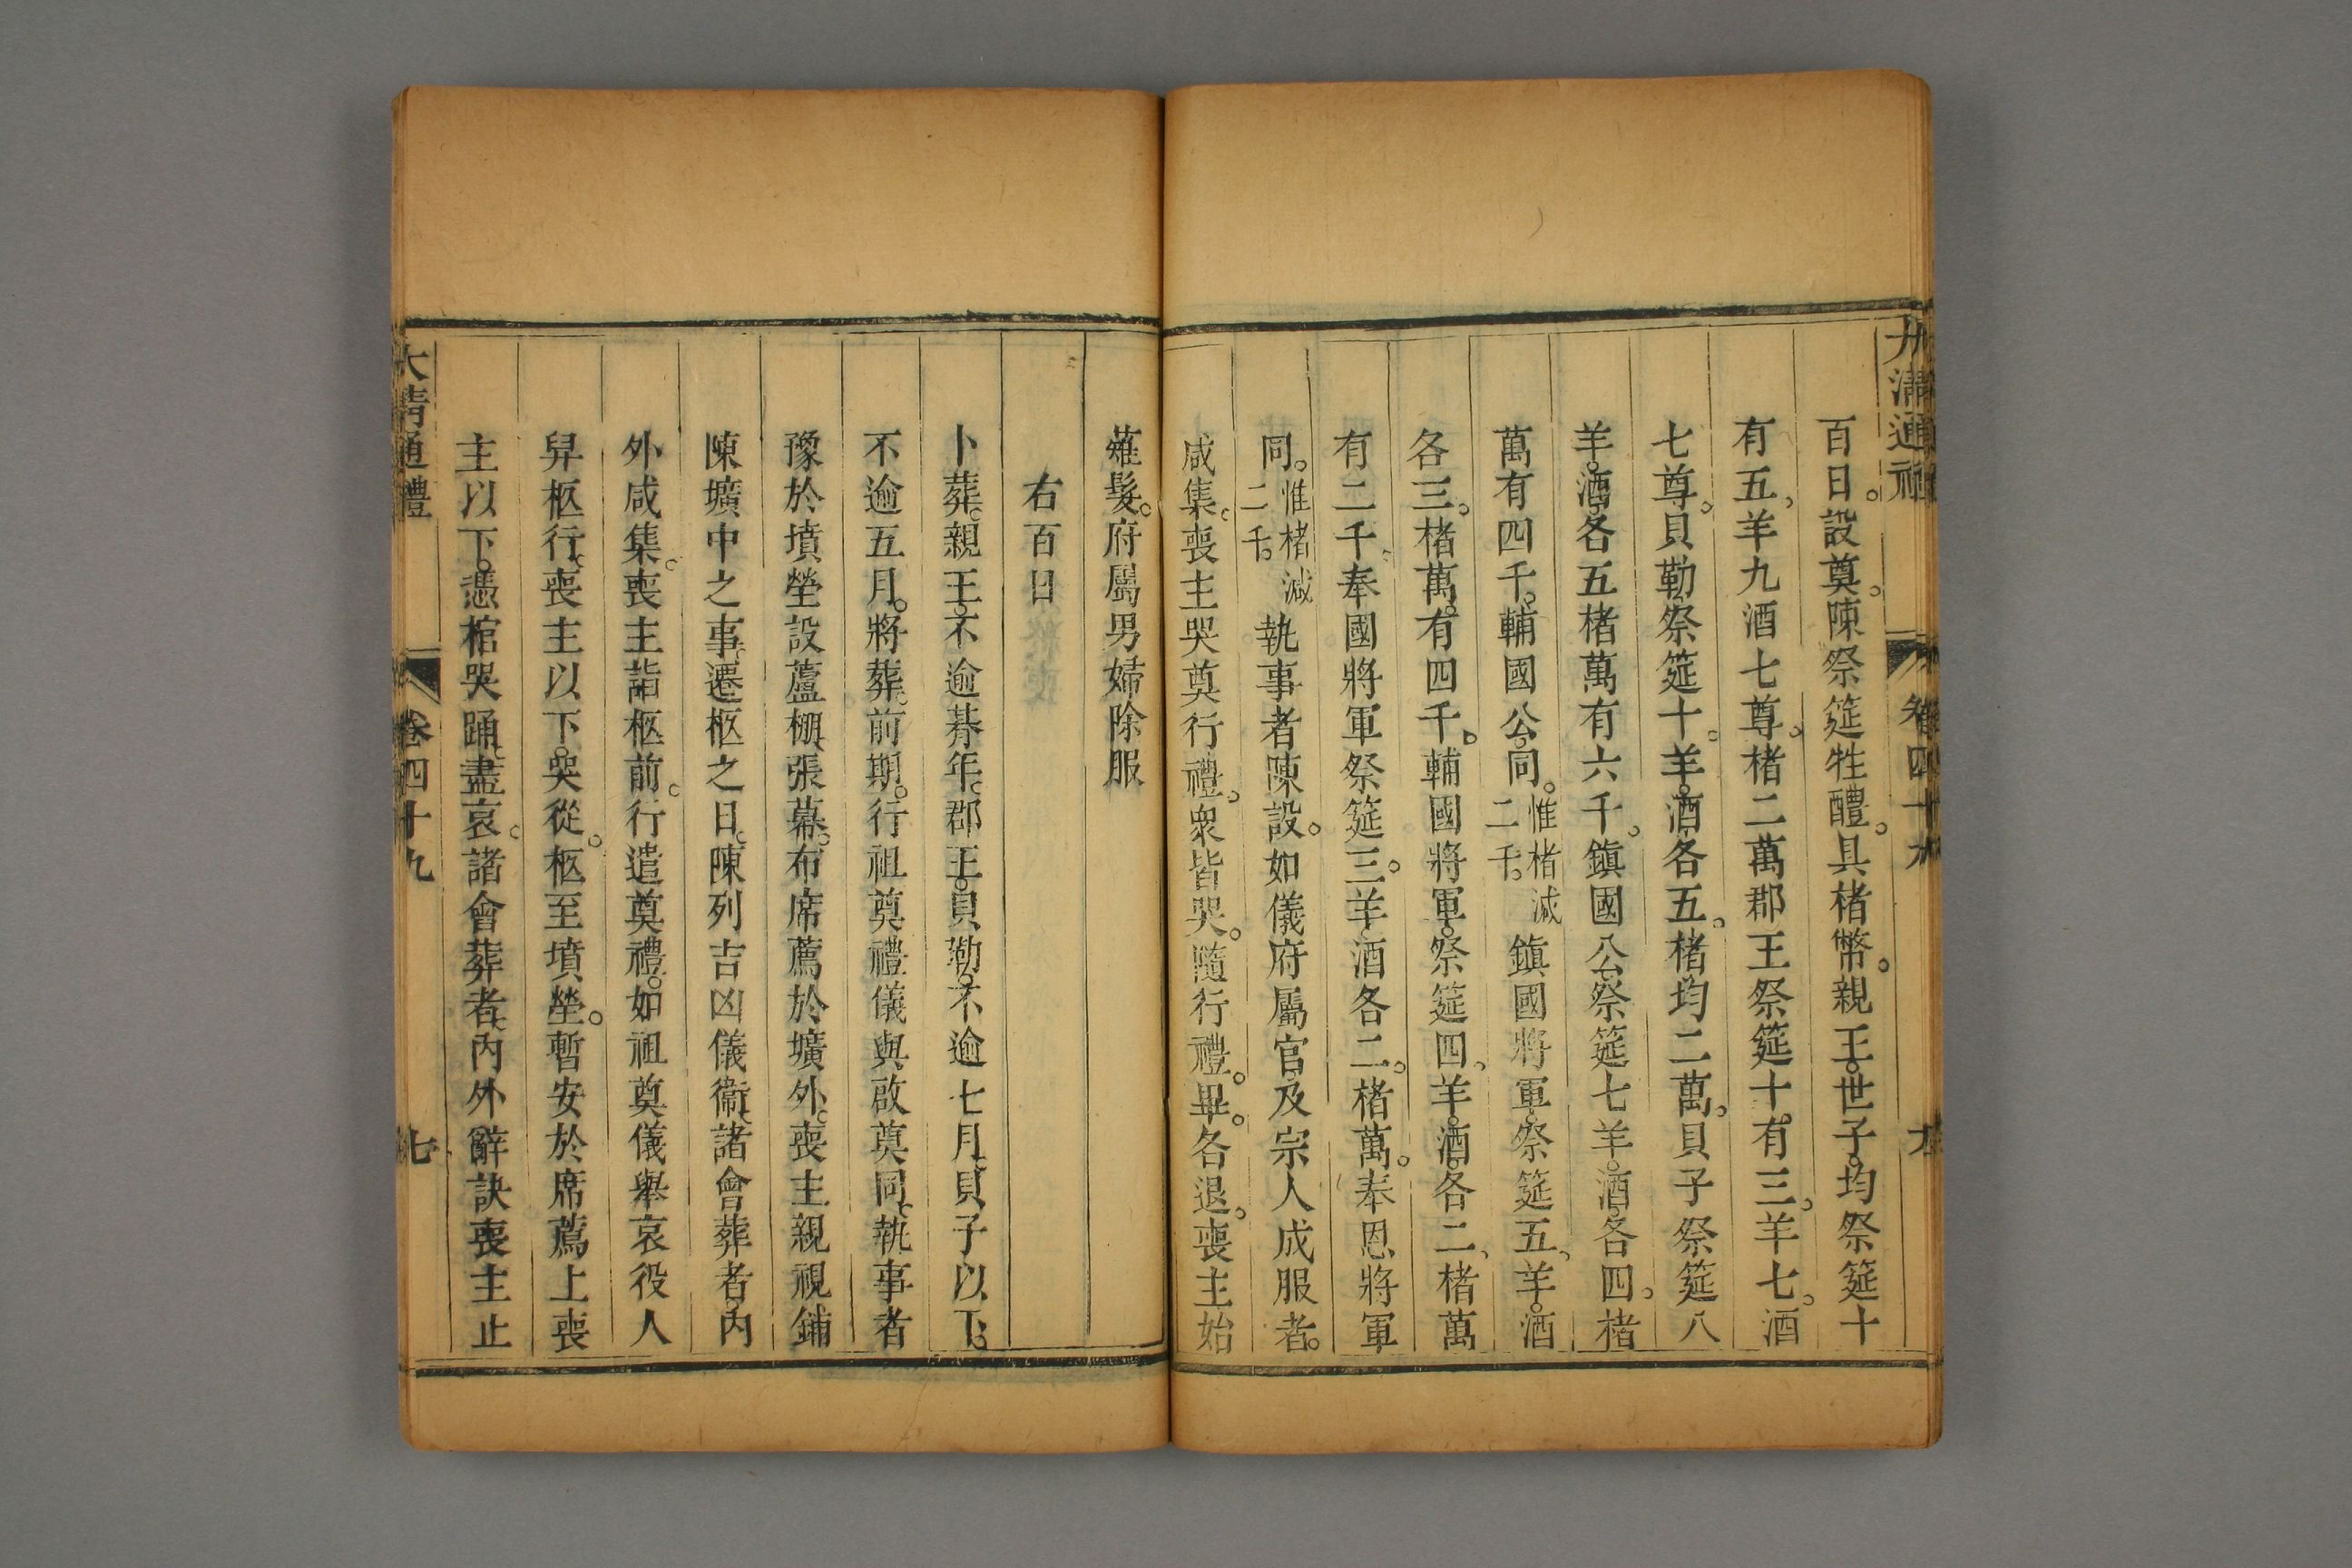 大清通禮 卷四十九 六
百日。設奠。陳祭筵牲醴。具楮幣。親王。世子。均祭筵十
有五。羊九酒七尊。楮二萬郡王祭筵十有三。羊七。酒
七尊。貝勒祭筵十。羊。酒各五。楮均二萬。貝子祭筵八
羊。酒各五楮萬有六千。鎭國公祭筵七羊。酒各四。楮
萬有四千。輔國公。同。惟楮減二千。鎭國將軍。祭筵五。羊。酒
各三。楮萬。有四千。輔國將軍。祭筵四。羊。酒。各二。楮萬
有二千。奉國將軍祭筵三。羊。酒各二。楮萬。奉恩將軍
同。惟楮減二千。執事者陳設。如儀府屬官及宗人成服者。
咸集。喪主哭奠行禮。衆皆哭。隨行禮。畢。各退。喪主始
薙髮。府屬男婦除服
右百日
卜葬。親王。不逾朞年。郡王。貝勒。不逾七月。貝子以下。
不逾五月。將葬。前期。行祖奠禮儀與啟奠同。執事者
豫於墳塋設蘆棚。張幕。布席薦於壙外。喪主親視鋪
陳壙中之事。遷柩之日。陳列吉凶儀衞。諸會葬者。內
外咸集。喪主詣柩前。行遣奠禮。如祖奠儀舉哀役人
舁柩行。喪主以下。哭從。柩至墳塋。暫安於席薦上喪
主以下。憑棺哭踊。盡哀。諸會葬者。內外辭訣喪主止
大清通禮 卷四十九 七